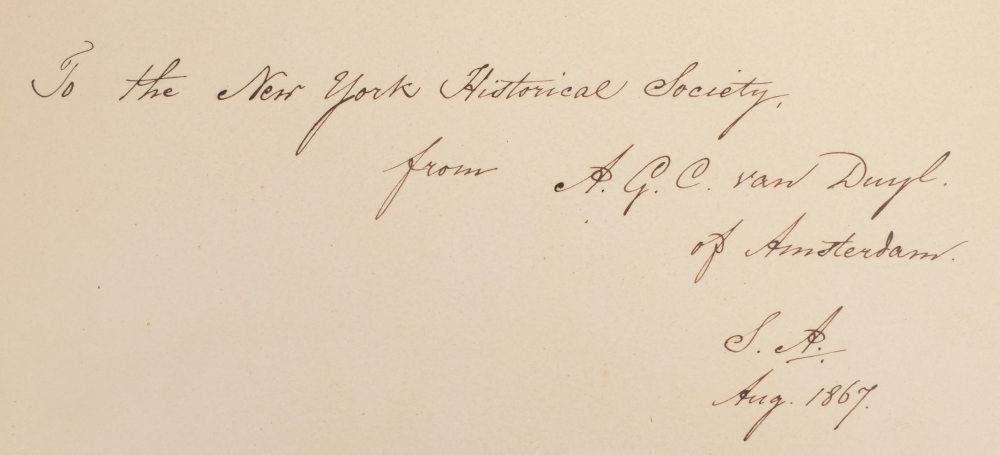 To the New York Historical Society,
from A. G. C. van Duyl.
of Amsterdam.
S. A.
Aug. 1867.